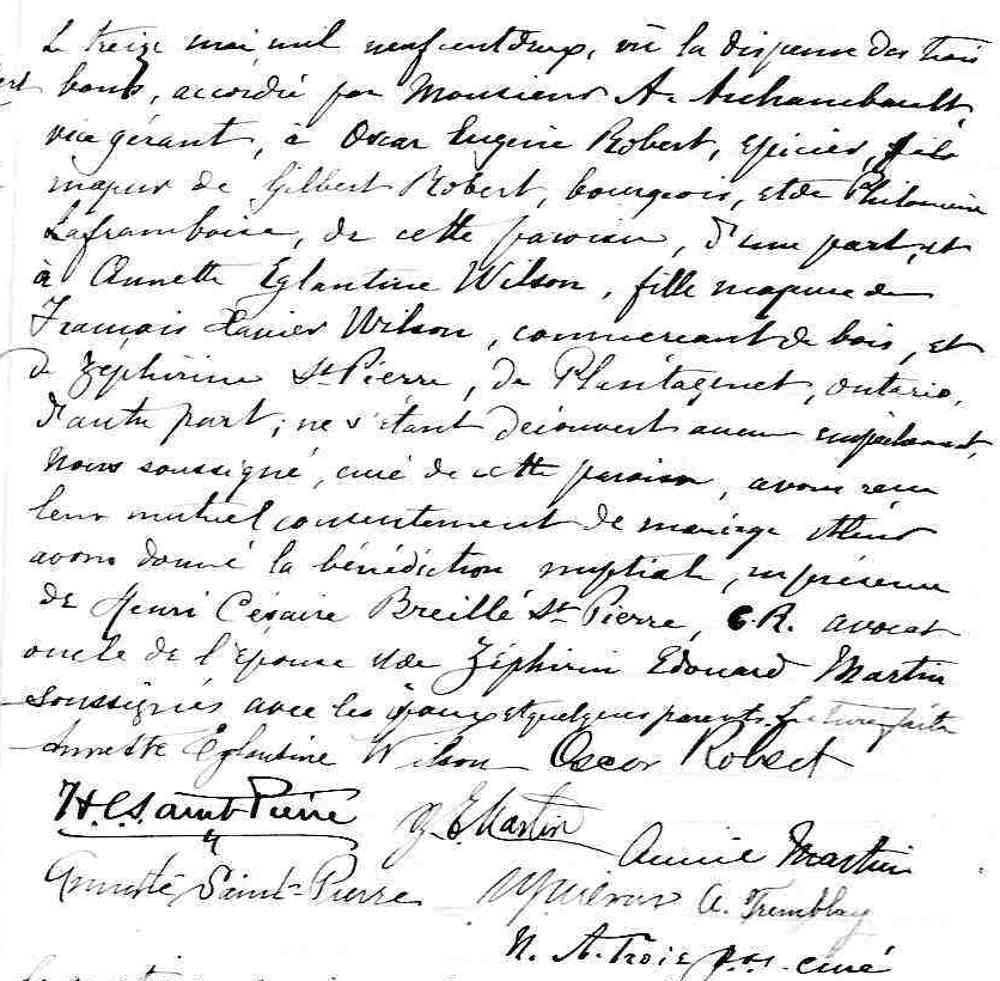 Le treize mai mil neuf cent deux, vu la dispense des trois
bans, accordée par Monsieur A. Archambault,
vice gérant, à Oscar Eugène Robert, épicier, fils
majeur de Gilbert Robert, bourgeois, et de Philomène
Laframboise, de cette paroisse, d'une part, et
à Annette Eglantine Wilson, fille majeure de
François Xavier Wilson, commercant de bois, et
de Zéphirine St-Pierre, de Plantagenet, Ontario,
d'autre part; ne s'étant découvert aucun empêchement,
Nous soussigné, curé de cette paroisse, avons reçu
leur mutuel consentement de mariage et leur
avons donné la bénédiction nuptiale, en présence
de Henri Césaire Breillé St-Pierre, C.R. avocat
oncle de l'épouse et de Zéphirin Edouard Martin
soussignés avec les époux et quelques parents. Lecture faite
Annette Eglantine Wilson Oscar Robert
H.C. Saint-Pierre Z. E. Martin
Annie Martin
Saint-Pierre A. Tremblay
N. A. Troie ptre. curé